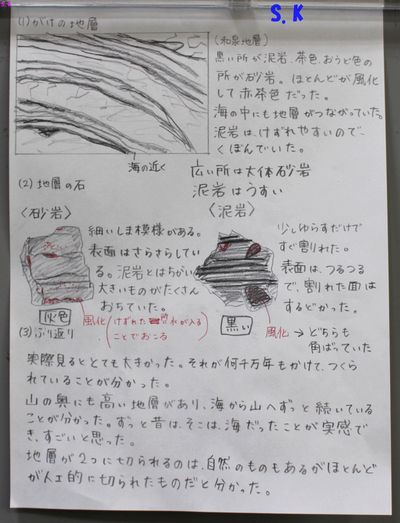 S.K
(1)がけの地層
(和泉地層)
黒い所が泥岩、茶色、おうど色の
所が砂岩。ほとんどが風化
して赤茶色だった。
海の中にも地層がつながっていた。
泥岩は、けずれやすいので、
くぼんでいた。
海の近く
広い所は大体砂岩
泥岩はうすい
(2)地層の石
〈砂岩〉
細いしま模様がある。
表面はさらさらしてい
る。泥岩とはちがい
大きいものがたくさん
おちていた。
灰色
風化(けずれた
れが入る
ことでおこる)
〈泥岩〉
少しゆらすだけで
すぐ割れた。
表面は、つるつる
で、割れた面は
するどかった。
黒い
風化→どちらも
角ばっていた
(3)ふり返り
実際見るととても大きかった。それが何千万年もかけて、つくら
れていることが分かった。
山の奥にも高い地層があり、海から山へずっと続いている
ことが分かった。ずっと昔は、そこは、海だったことが実感で
き、すごいと思った。
地層が2つに切られるのは、自然のものもあるがほとんど
が人工的に切られたものだと分かった。